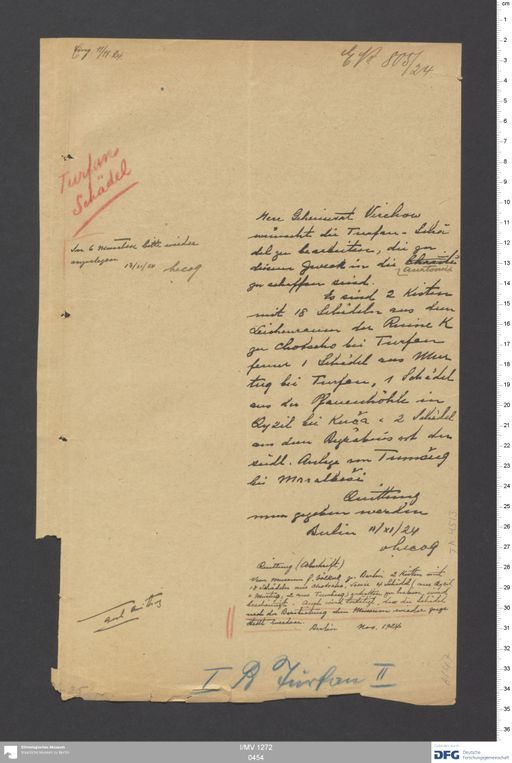 E № 805/24
Turfan
Schädel
In 6 Monaten bitte wieder
vorzulegen
12/XI/24 Lecoq
Herr Geheimrat Virchow
wünscht die Turfan-Schä-
del zu bearbeiten, die zu
diesem Zweck in die
Anatomie
zu schaffen sind.
Es sind 2 Kisten
mit 18 Schädeln aus dem
Leichenraum der Ruine K
zu Chotscho bei Turfan
ferner 1 Schädel aus Mur-
tuq bei Turfan, 1 Schädel
aus der Pfauenhöhle in
Qyzil bei Kuča & 2 Schädel
aus dem
südl. Anlage von Tumšuq
bei Maralbaši
Quittung
muss gegeben werden
Berlin 11/XI/24
Lecoq
Quittung (Abschrift)
Vom Museum f. Völkerk. zu Berlin 2 Kisten mit
18 Schädeln aus Chotscho, sowie 4 Schädel (aus Qyzil
& Murtuq, 2 aus Tumšuq) erhalten zu haben, wird
bescheinigt. Auch wird bestätigt, dass die Schädel
nach der Bearbeitung dem Museum wieder zuge-
stellt werden.
Berlin Nov. 1924
I B Turfan II
I/MV 1272
0454
Ethnologisches Museum
Staatliche Museen zu Berlin
DFG Deutsche
Forschungsgemeinschaft